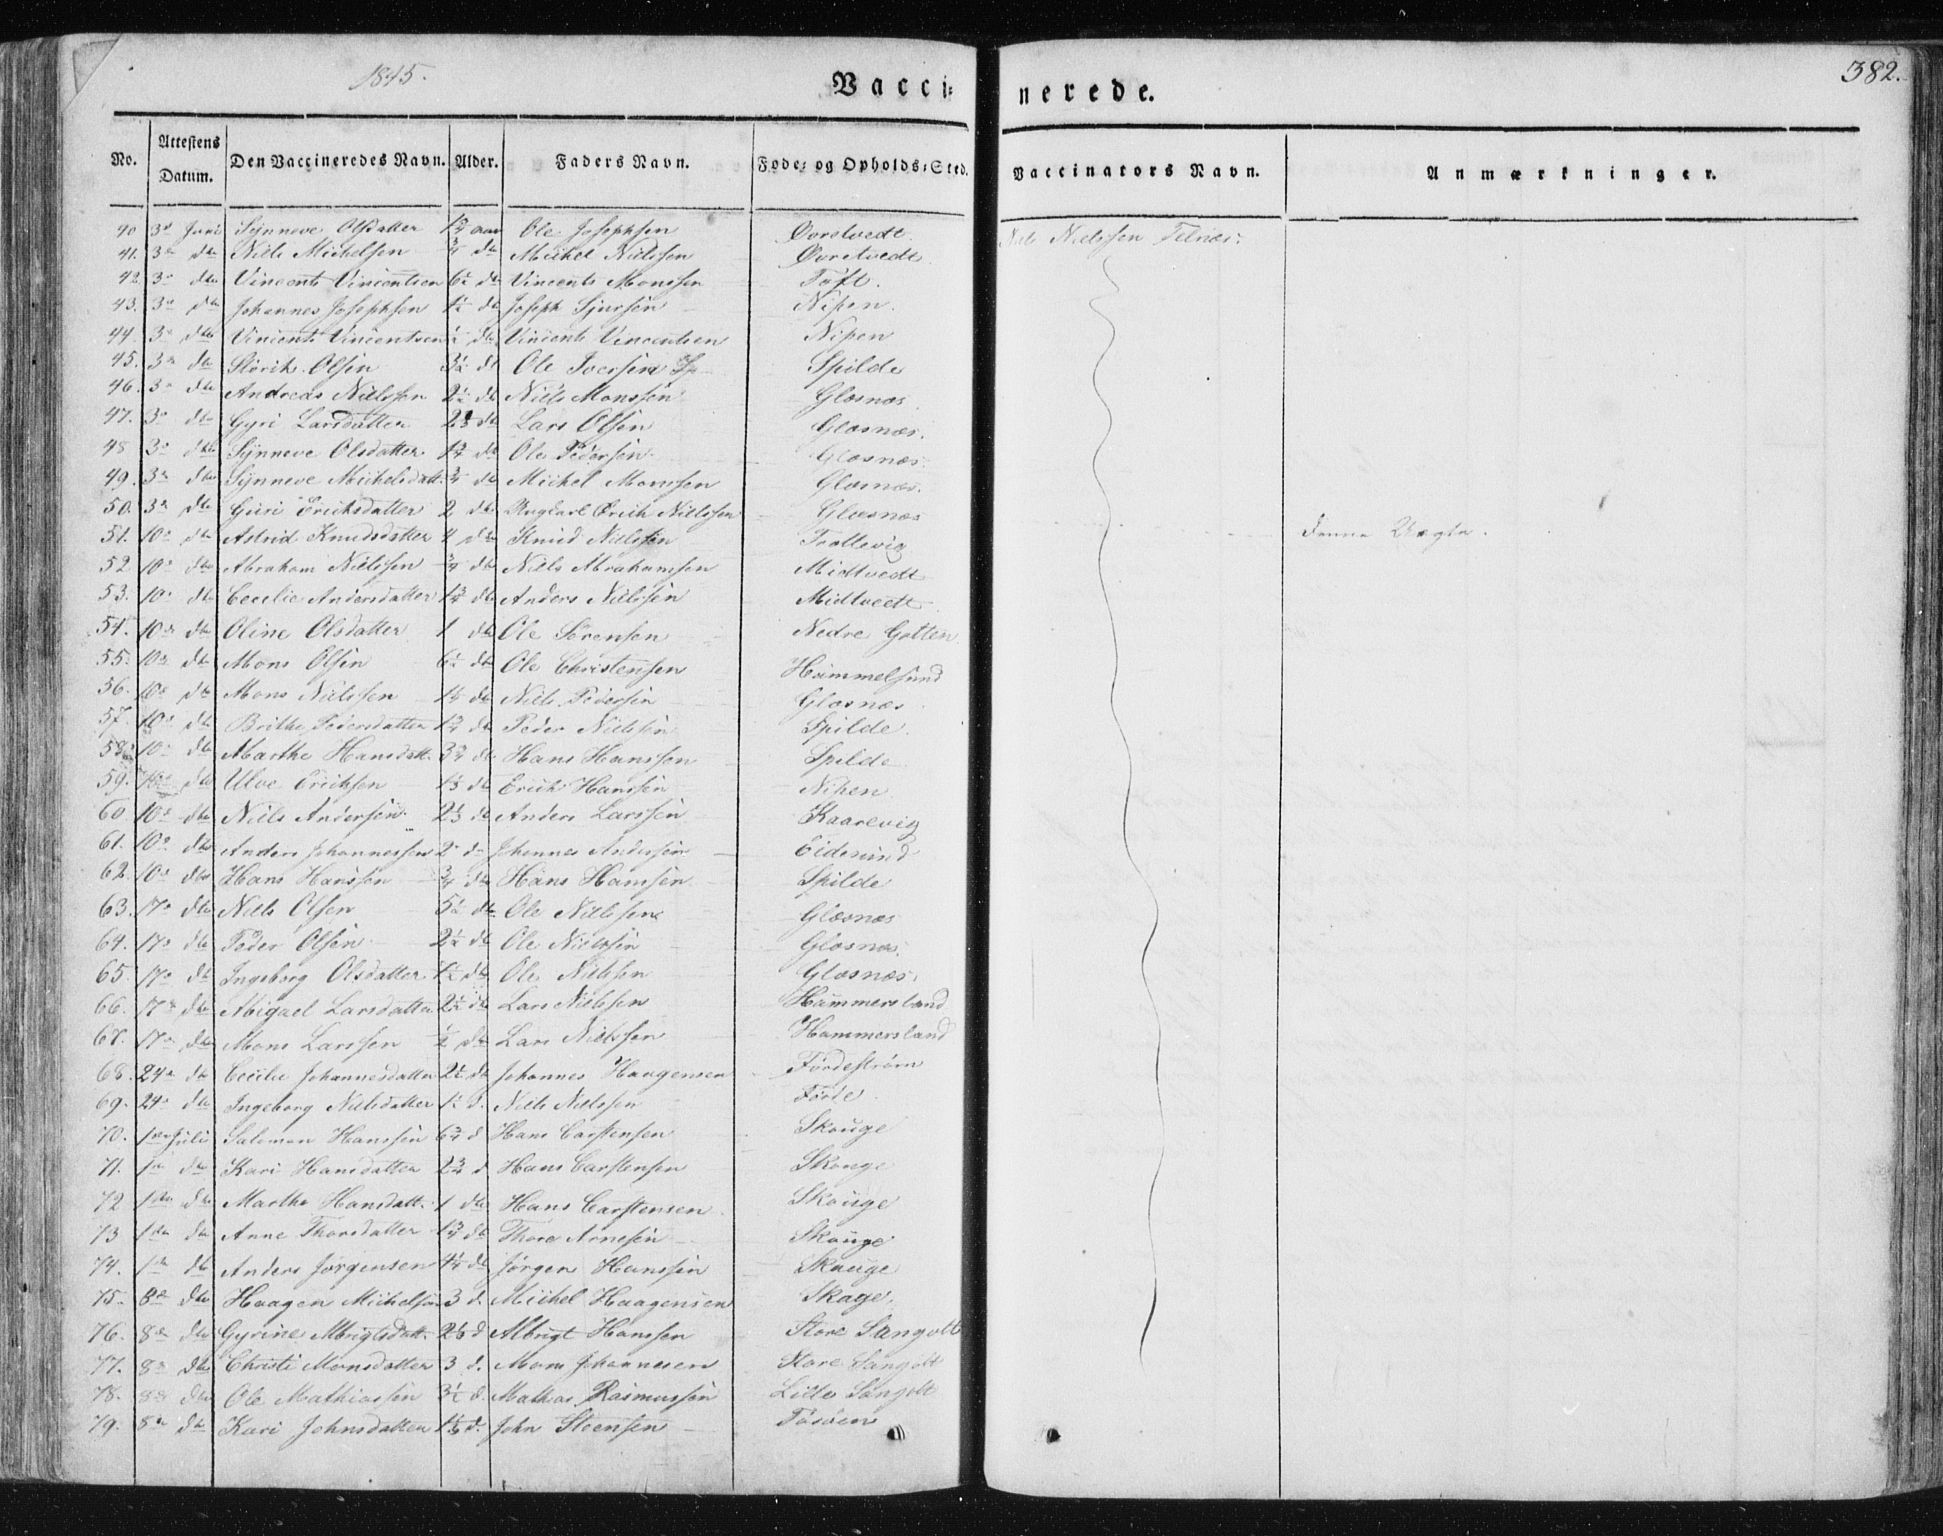 1845.
382.
Vacci= nerede.
No. Attestens Datum. Den Vaccineredes Navn. Alder. Faders Navn. Føde= og Opholds=Sted. Vaccinators Navn. Anmærkninger.
40 3d Juni Synneve Olsdatter 1¾ aar Ole Josephsen Øvretvedt. Nielssen Telnæs.
41. 3 dto Niels Michelsen ¾ dto Michel Nielssen Øvretvedt
42. 3 dto Vincents Vincentsen 6½ dto Vincents Monssen Toft.
43. 3 dto Johannes Josephsen 1½ dto Joseph Sjursen Nipen.
44. 3 dto Vincents Vincentsen ½ dto Vincents Vincentsen Nipen
45. 3 dto Olsen 3½ dto Ole Iversen Spilde
46. 3 dto Andreas Nielssen 2½ dto Niels Monssen Glæsnæs
47. 3 dto Gyri Larsdatter dto Lars Olsen Glæsnæs.
48 3 dto Synneve Olsdatter 1¾ dto Ole Pedersen Glæsnæs.
49. 3 dto Synneve Michelsdatt. ¾ dto Michel Monssen Glæsnæs.
50. 3 dto Guri Erichsdatter 2 dto Ungkarl Erich Nielssen Glæsnæs
51. 10 dto Astrid Knudsdatter 4 dto Knud Nielssen Trollevig
52 10 dto Abraham Nielssen ¾ dto Niels Abrahamsen Midtvedt
53. 10 dto Cecilie Andersdatter 1¾ dto Anders Nielssen Midtvedt
54. 10 dto Oline Olsdatter 1 dto Ole Sørensen Nedre Gotten
55. 10 dto Mons Olsen 6½ dto Ole Christensen Hummelsund
56. 10 dto Mons Nielssen dto Niels Pedersen Glæsnæs
57. 10 dto Brithe Pedersdatter 1¾ dto Peder Nielssen Spilde.
58. 10 dto Marthe Hansdatt. 3¾ dto Hans Hanssen Spilde
59. dto Ulve Erichsen dto Erich Hanssen Nipen
60. 10 dto Niels Andersen 2⅓ dto Anders Larssen Kaarevig
61. 10 dto Anders Johannessen 2 d Johannes Andersen Eidesund
62. 10 dto Hans Hanssen ¾ dto Hans Hanssen Spilde
63. 17 dto Niels Olsen 5½ dto Ole Nielssen Glæsnæs
64. 17 dto Peder Olsen 2½ dto Ole Nielssen Glæsnæs.
65 17 dto Ingeborg Olsdatter dto Ole Nielssen Glæsnæs
66. 17 dto Abigael Larsdatter 2½ dto Lars Nielssen Hammersland
67. 17 dto Mons Larssen ½ dto Lars Nielssen Hammersland
68. 24 dto Cecilie Johannesdatter dto Johannes Haagensen Førdestrøm
69. 24 dto Ingeborg Nielsdatter d. Niels Nielssen Førde
70. 1 Juli Salomon Hanssen 6¾ d Hans Carstensen Skouge
71. 1 dto Kari Hansdatter 2¾ d Hans Carstensen Skouge
72 1 dto Marthe Hansdatt. 1 dto Hans Carstensen Skouge
73 1 dto Anne Thorsdatter 1¾ dto Thore Arnesen Skouge
74. 1 dto Anders Jørgensen dto Jørgen Hanssen Skouge
75. 8 dto Haagen Michelsen 3 d. Michel Haagensen Skage.
76. 8 dto Gyrine Albrigtsdatt. d Albrigt Hanssen Store Sangolt
77. 8 dto Christi Monsdatter 3 d. Mons Johannesen Store Sangolt
78. 8 dto Ole Mathiassen 3½ d. Mathias Rasmussen Lille Sangolt
79. 8 dto Kari Johnsdatter d. John Steensen Tosøen